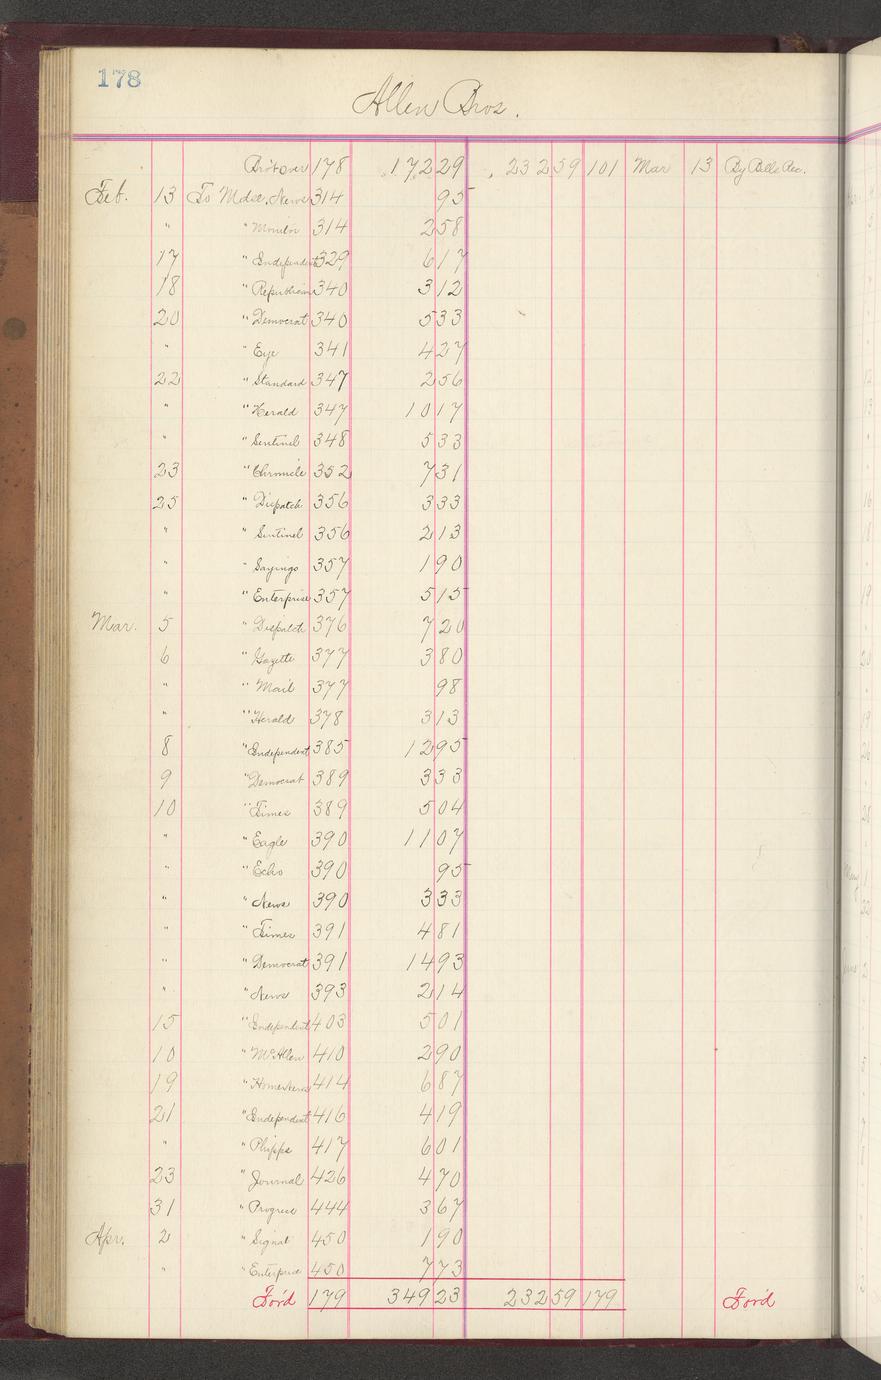 178
Allen Bros.
Bro't over 178 172 29 232 59 101 Mar 13 By Bills Rec.
Feb. 13 To Mdse, News 314 95
" " Monitor 314 2 58
17 " Independent 329 6 17
18 " Republican 340 3 12
20 " Democrat 340 5 33
" " Eye 341 4 27
22 " Standard 347 2 56
" " Herald 347 10 17
" " Sentinel 348 5 33
23 " Chronicle 352 7 31
25 " Dispatch 356 3 33
" " Sentinel 356 2 13
" " Sayings 357 1 90
" " Enterprise 357 5 15
Mar. 5 " Dispatch 376 7 20
6 " Gazette 377 3 80
" " Mail 377 98
" " Herald 378 3 13
8 " Independent 385 12 95
9 " Democrat 389 3 33
10 " Times 389 5 04
" " Eagle 390 11 07
" " Echo 390 95
" " News 390 3 33
" " Times 391 4 81
" " Democrat 391 14 93
" " News 393 2 14
15 " Independent 403 5 01
10 " McAllen 410 2 90
19 " 414 6 87
21 " Independent 416 4 19
" " Phipps 417 6 01
23 " Journal 426 4 70
31 " Progress 444 3 67
Apr. 2 " Signal 450 1 90
" " Enterprise 450 7 73
For'd 179 349 23 232 59 179 For'd